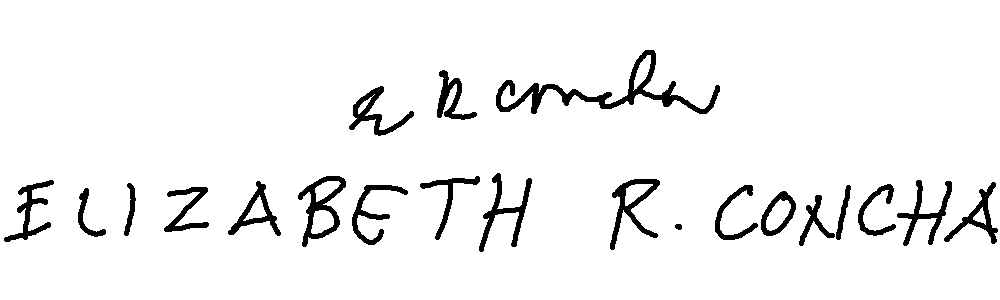 E R Concha
ELIZABETH R. CONCHA